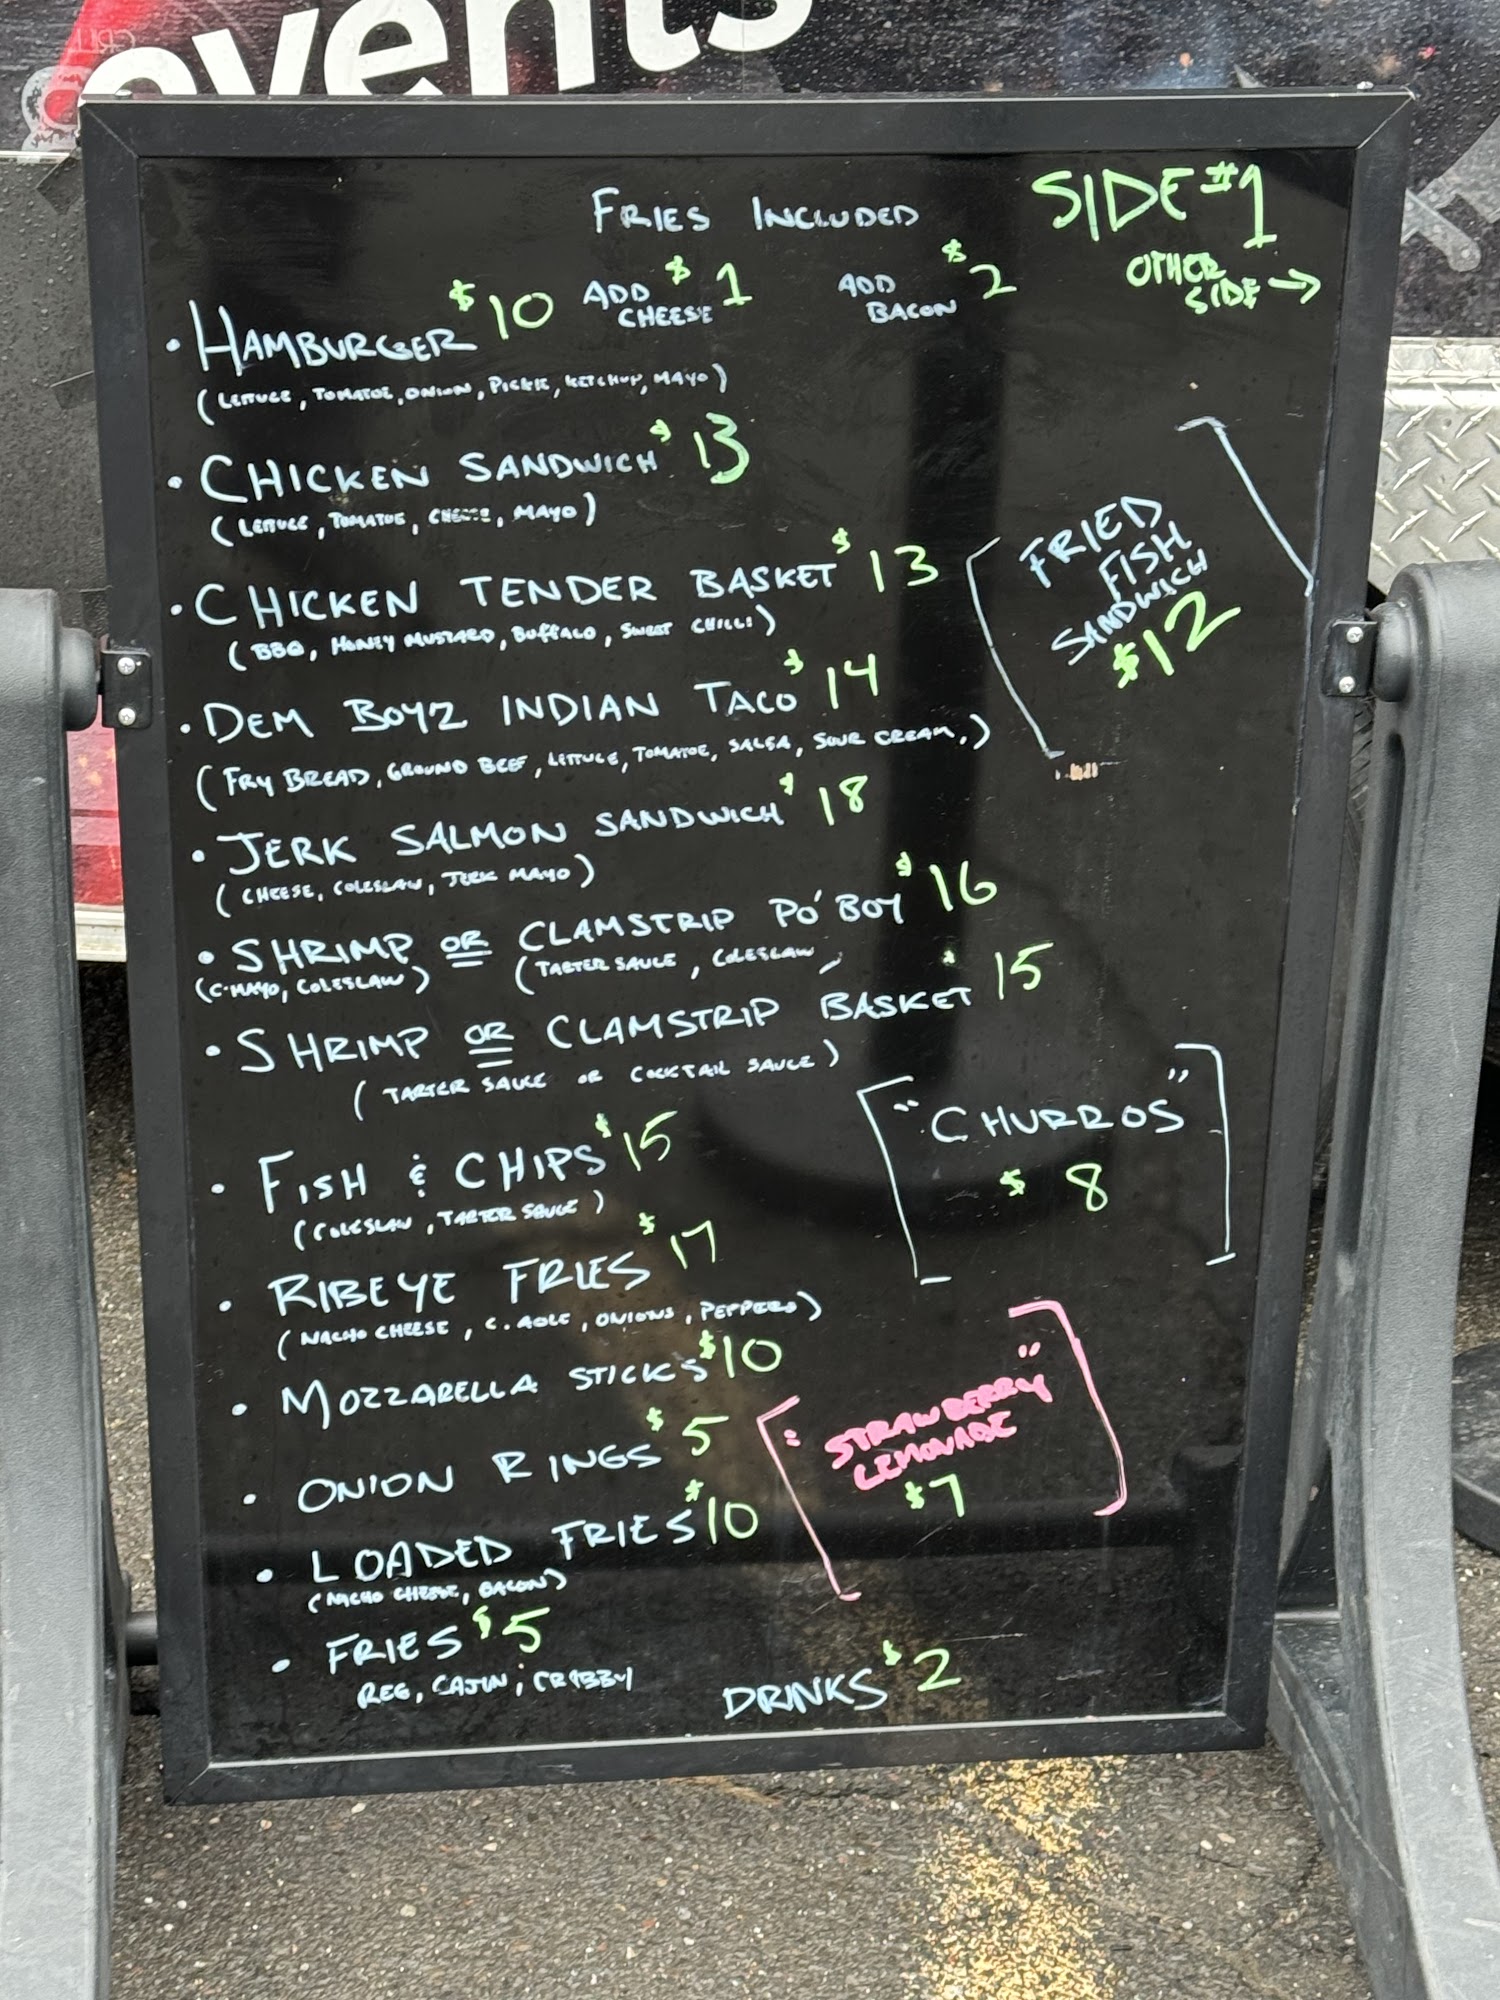 events
FRIES INCLUDED
SIDE #1
OTHER
SIDE →
• HAMBURGER $10 ADD CHEESE $1 ADD BACON $2
(LETTUCE, TOMATOE, ONION, PICKLE, KETCHUP, MAYO)
• CHICKEN SANDWICH $13
(LETTUCE, TOMATOE, CHEESE, MAYO)
• CHICKEN TENDER BASKET $13
(BBQ, HONEY MUSTARD, BUFFALO, SWEET CHILLI)
FRIED
FISH
SANDWICH
$12
• DEM BOYZ INDIAN TACO $14
(FRY BREAD, GROUND BEEF, LETTUCE, TOMATOE, SALSA, SOUR CREAM,)
• JERK SALMON SANDWICH $18
(CHEESE, COLESLAW, JERK MAYO)
• SHRIMP OR CLAMSTRIP PO'BOY $16
(C-MAYO, COLESLAW) (TARTER SAUCE, COLESLAW,
• SHRIMP OR CLAMSTRIP BASKET $15
(TARTER SAUCE OR COCKTAIL SAUCE)
"CHURROS"
$8
• FISH & CHIPS $15
(COLESLAW, TARTER SAUCE)
• RIBEYE FRIES $17
(NACHO CHEESE, C. AOLE, ONIONS, PEPPERS)
• MOZZARELLA STICKS $10
"STRAWBERRY
LEMONADE"
$7
• ONION RINGS $5
• LOADED FRIES $10
(NACHO CHEESE, BACON)
• FRIES $5
REG, CAJUN, CRABBY
DRINKS $2